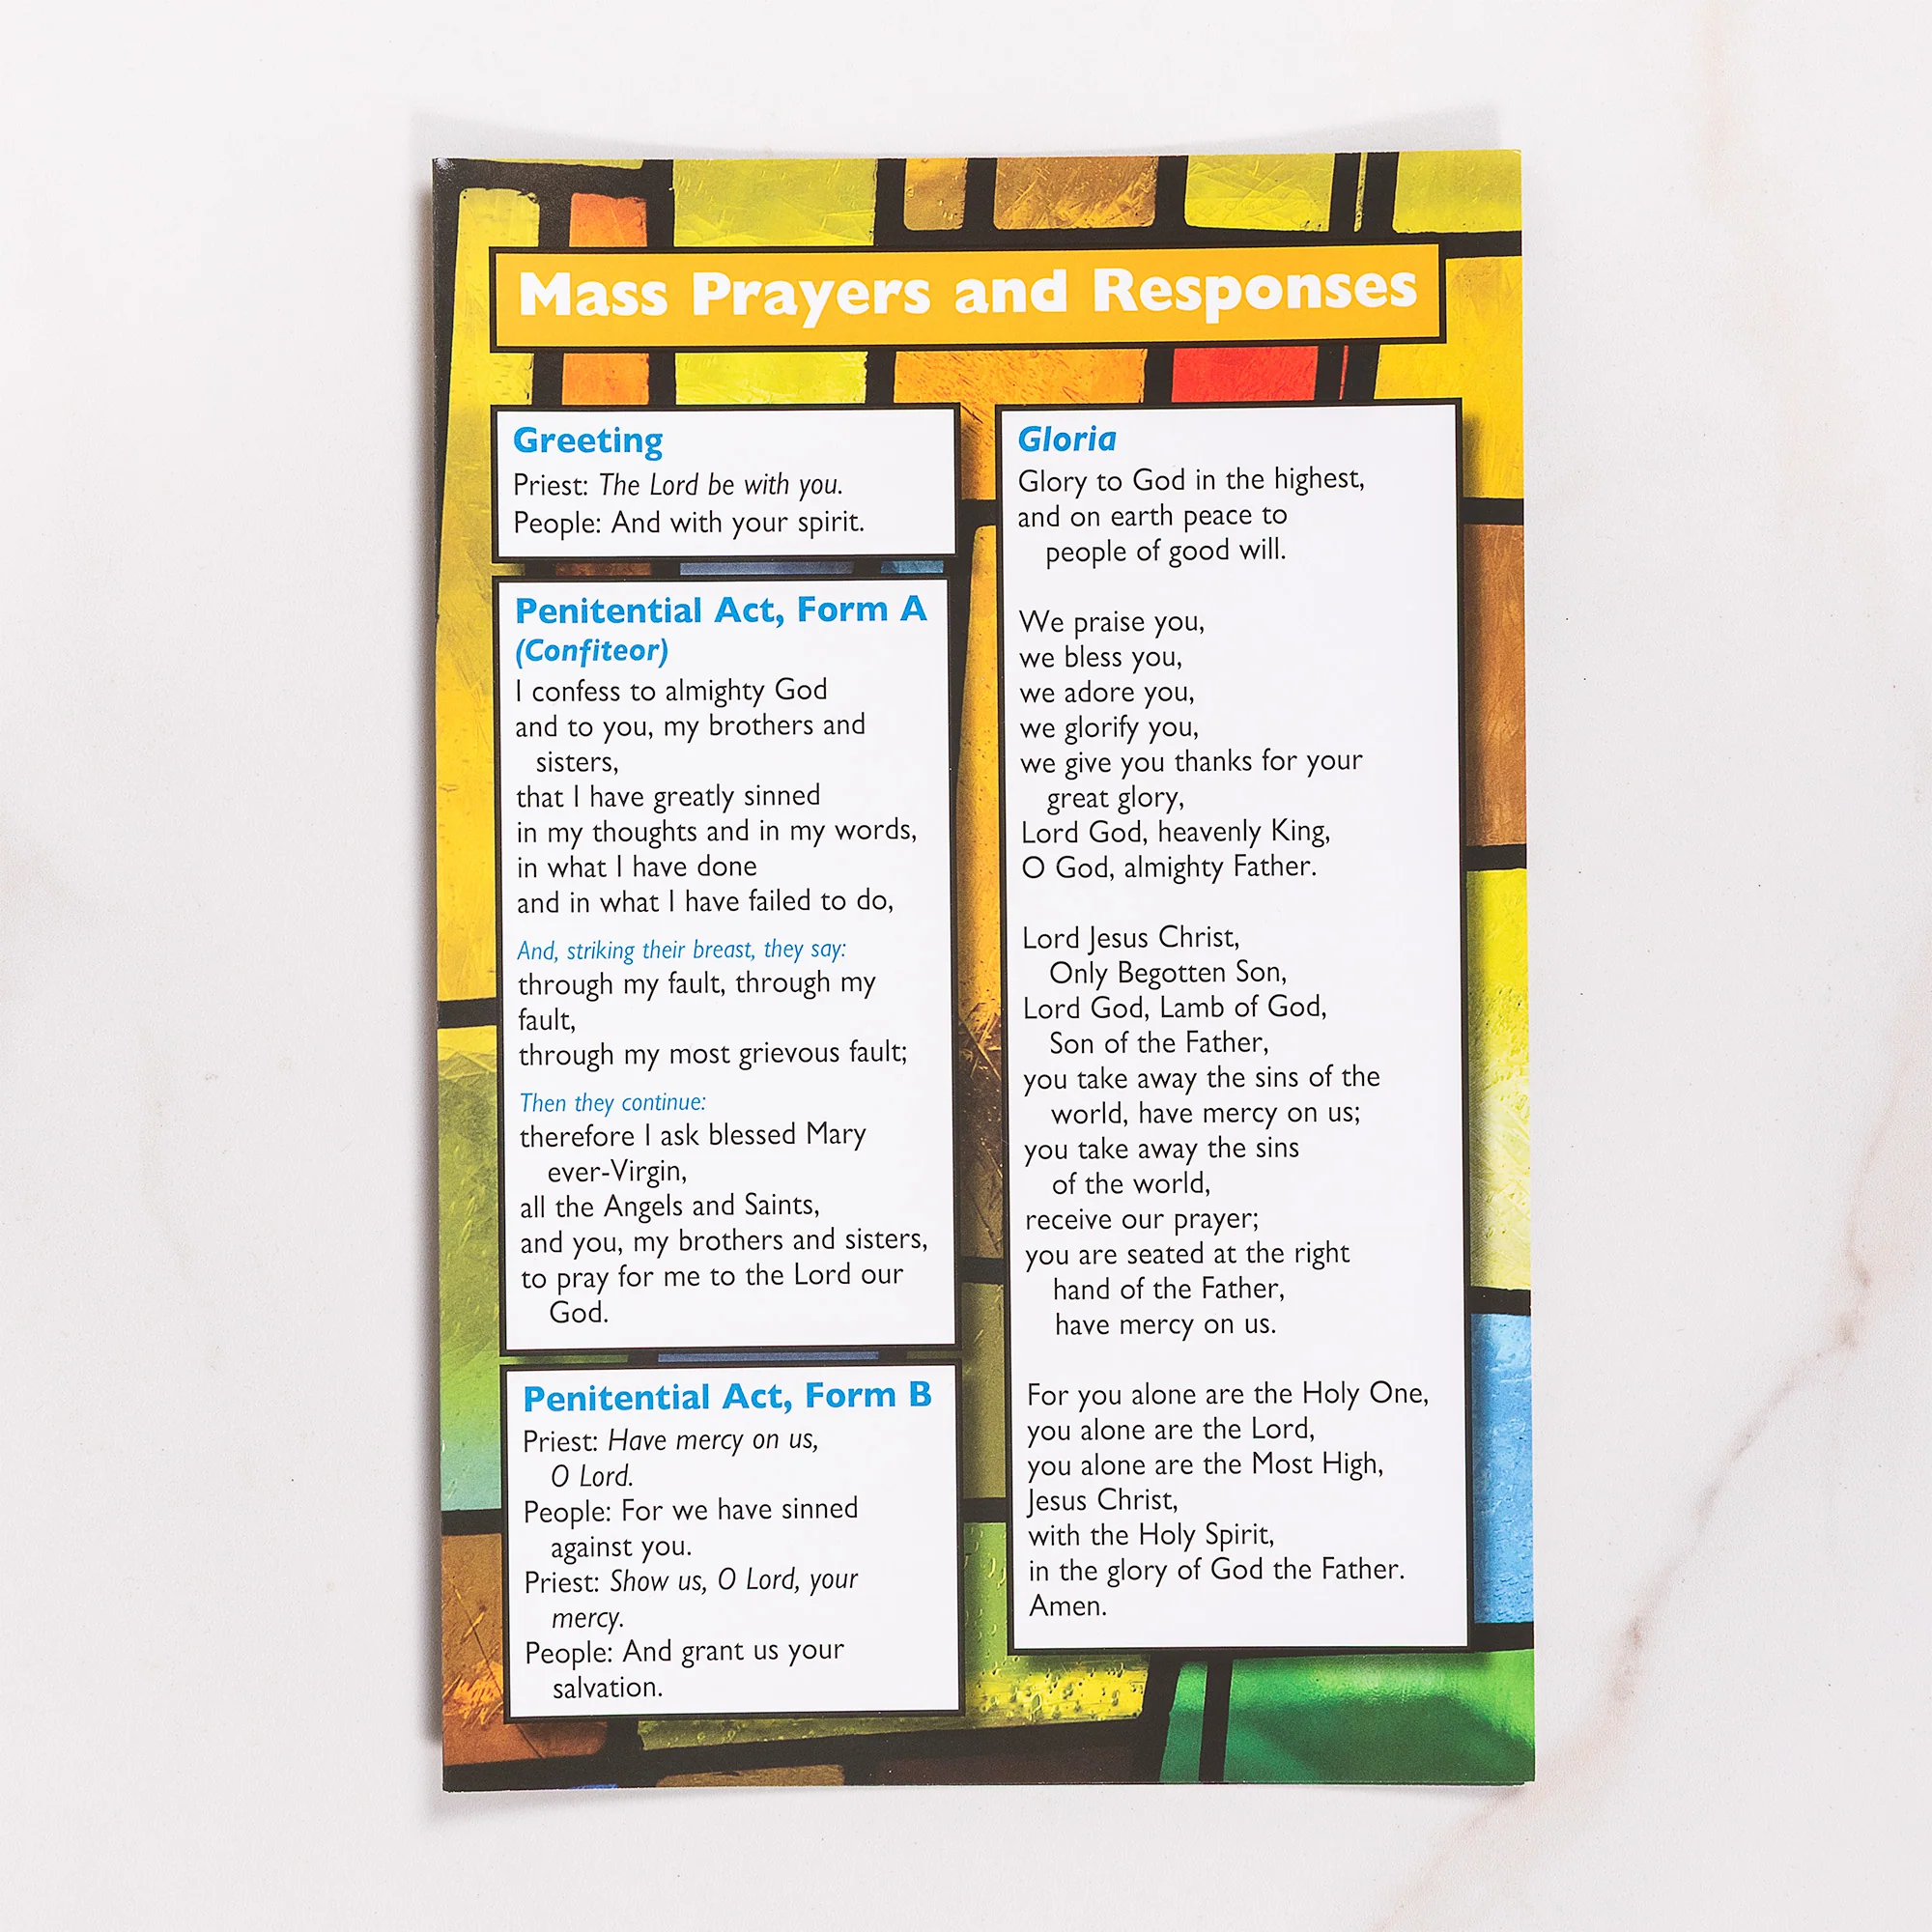 Mass Prayers and Responses
Greeting
Priest: The Lord be with you.
People: And with your spirit.
Penitential Act, Form A
(Confiteor)
I confess to almighty God
and to you, my brothers and
sisters,
that I have greatly sinned
in my thoughts and in my words,
in what I have done
and in what I have failed to do,
And, striking their breast, they say:
through my fault, through my
fault,
through my most grievous fault;
Then they continue:
therefore I ask blessed Mary
ever-Virgin,
all the Angels and Saints,
and you, my brothers and sisters,
to pray for me to the Lord our
God.
Penitential Act, Form B
Priest: Have mercy on us,
O Lord.
People: For we have sinned
against you.
Priest: Show us, O Lord, your
mercy.
People: And grant us your
salvation.
Gloria
Glory to God in the highest,
and on earth peace to
people of good will.
We praise you,
we bless you,
we adore you,
we glorify you,
we give you thanks for your
great glory,
Lord God, heavenly King,
O God, almighty Father.
Lord Jesus Christ,
Only Begotten Son,
Lord God, Lamb of God,
Son of the Father,
you take away the sins of the
world, have mercy on us;
you take away the sins
of the world,
receive our prayer;
you are seated at the right
hand of the Father,
have mercy on us.
For you alone are the Holy One,
you alone are the Lord,
you alone are the Most High,
Jesus Christ,
with the Holy Spirit,
in the glory of God the Father.
Amen.